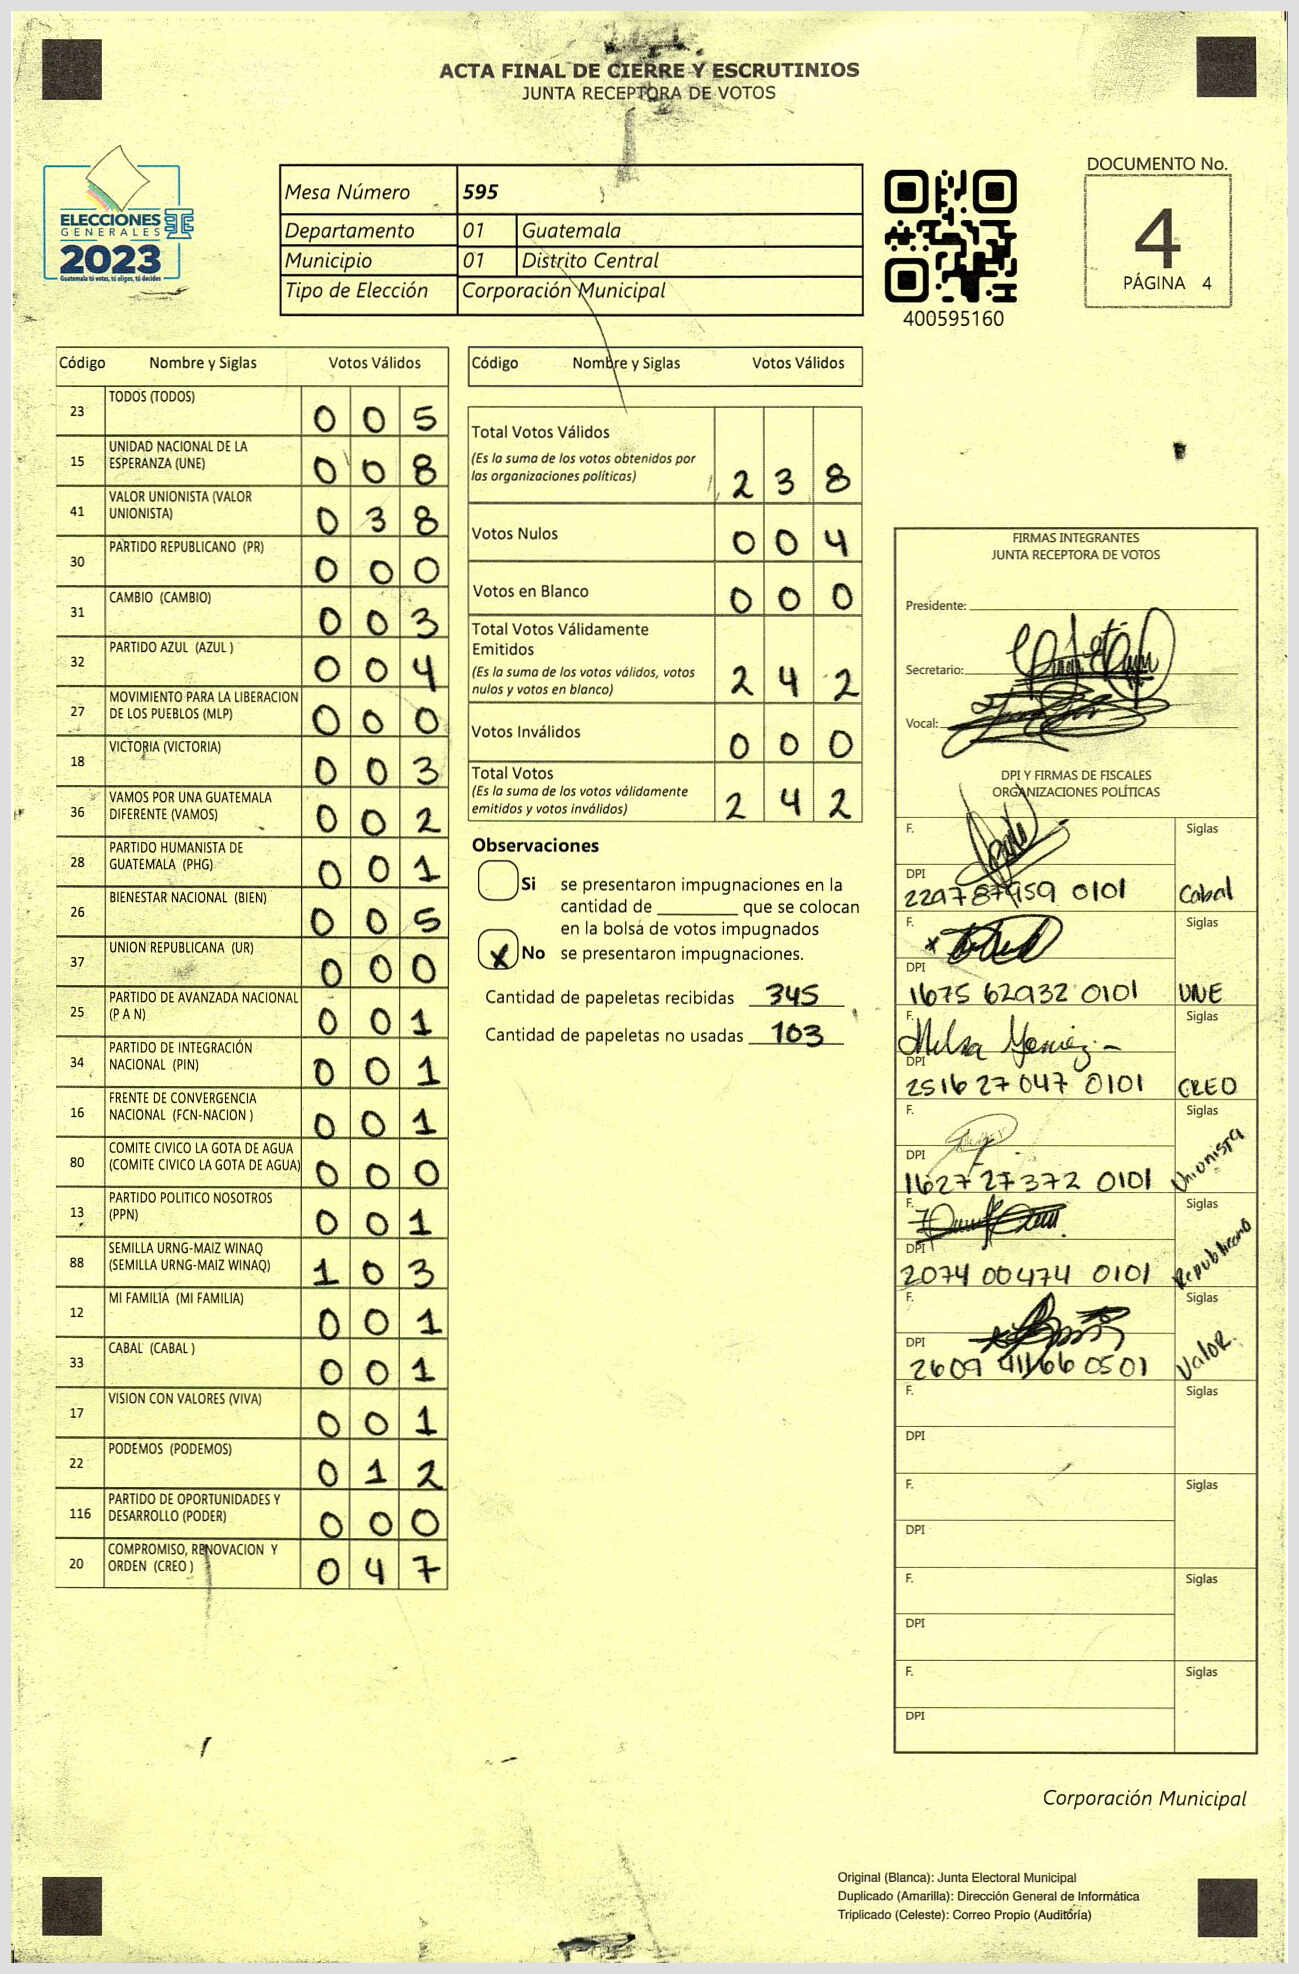 ACTA FINAL DE CIERRE Y ESCRUTINIOS
JUNTA RECEPTORA DE VOTOS
ELECCIONES
GENERALES
2023
Guatemala tú votas, tú eliges, tú decides
Mesa Número 595
Departamento 01 Guatemala
Municipio 01 Distrito Central
Tipo de Elección Corporación Municipal
400595160
DOCUMENTO No.
4
PÁGINA 4
Código Nombre y Siglas Votos Válidos
23 TODOS (TODOS) 0 0 5
15 UNIDAD NACIONAL DE LA ESPERANZA (UNE) 0 0 8
41 VALOR UNIONISTA (VALOR UNIONISTA) 0 3 8
30 PARTIDO REPUBLICANO (PR) 0 0 0
31 CAMBIO (CAMBIO) 0 0 3
32 PARTIDO AZUL (AZUL ) 0 0 4
27 MOVIMIENTO PARA LA LIBERACION DE LOS PUEBLOS (MLP) 0 0 0
18 VICTORIA (VICTORIA) 0 0 3
36 VAMOS POR UNA GUATEMALA DIFERENTE (VAMOS) 0 0 2
28 PARTIDO HUMANISTA DE GUATEMALA (PHG) 0 0 1
26 BIENESTAR NACIONAL (BIEN) 0 0 5
37 UNION REPUBLICANA (UR) 0 0 0
25 PARTIDO DE AVANZADA NACIONAL (P A N) 0 0 1
34 PARTIDO DE INTEGRACIÓN NACIONAL (PIN) 0 0 1
16 FRENTE DE CONVERGENCIA NACIONAL (FCN-NACION ) 0 0 1
80 COMITE CIVICO LA GOTA DE AGUA (COMITE CIVICO LA GOTA DE AGUA) 0 0 0
13 PARTIDO POLITICO NOSOTROS (PPN) 0 0 1
88 SEMILLA URNG-MAIZ WINAQ (SEMILLA URNG-MAIZ WINAQ) 1 0 3
12 MI FAMILIA (MI FAMILIA) 0 0 1
33 CABAL (CABAL ) 0 0 1
17 VISION CON VALORES (VIVA) 0 0 1
22 PODEMOS (PODEMOS) 0 1 2
116 PARTIDO DE OPORTUNIDADES Y DESARROLLO (PODER) 0 0 0
20 COMPROMISO, RENOVACION Y ORDEN (CREO ) 0 4 7
Código Nombre y Siglas Votos Válidos
Total Votos Válidos
(Es la suma de los votos obtenidos por
las organizaciones políticas) 2 3 8
Votos Nulos 0 0 4
Votos en Blanco 0 0 0
Total Votos Válidamente
Emitidos
(Es la suma de los votos válidos, votos
nulos y votos en blanco) 2 4 2
Votos Inválidos 0 0 0
Total Votos
(Es la suma de los votos válidamente
emitidos y votos inválidos) 2 4 2
Observaciones
Si se presentaron impugnaciones en la
cantidad de ________ que se colocan
en la bolsa de votos impugnados
X No se presentaron impugnaciones.
Cantidad de papeletas recibidas 345
Cantidad de papeletas no usadas 103
FIRMAS INTEGRANTES
JUNTA RECEPTORA DE VOTOS
Presidente:
Secretario:
Vocal:
DPI Y FIRMAS DE FISCALES
ORGANIZACIONES POLÍTICAS
F. Siglas
DPI
0101 Cabal
F. Siglas
DPI
1675 62932 0101 UNE
F. Siglas
DPI
2516 27047 0101 CREO
F. Siglas
DPI
1627 27372 0101 Unionista
F. Siglas
DPI
2074 00474 0101 Republicano
F. Siglas
DPI
2609 41166 0501 Valor.
F. Siglas
DPI
F. Siglas
DPI
F. Siglas
DPI
F. Siglas
DPI
Corporación Municipal
Original (Blanca): Junta Electoral Municipal
Duplicado (Amarilla): Dirección General de Informática
Triplicado (Celeste): Correo Propio (Auditoría)